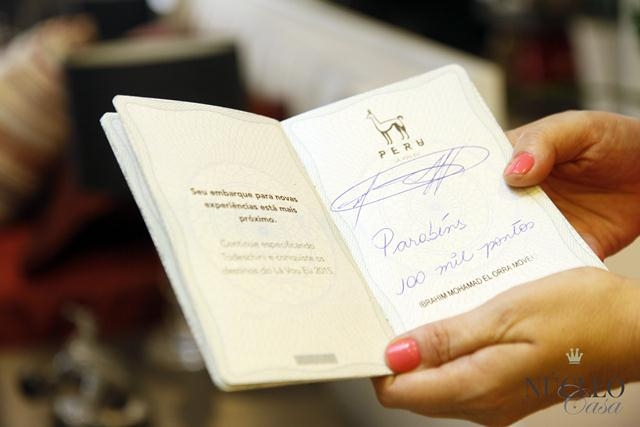 Seu embarque para novas
experiências está mais
próximo.
Continue especificando
Todeschini e conquiste os
destinos do Lá Vou Eu 2015.
PERU
LÁ VOU EU
Parabéns
100 mil pontos
IBRAHIM MOHAMAD EL ORRA MOVEI
NÚCLEO
Casa